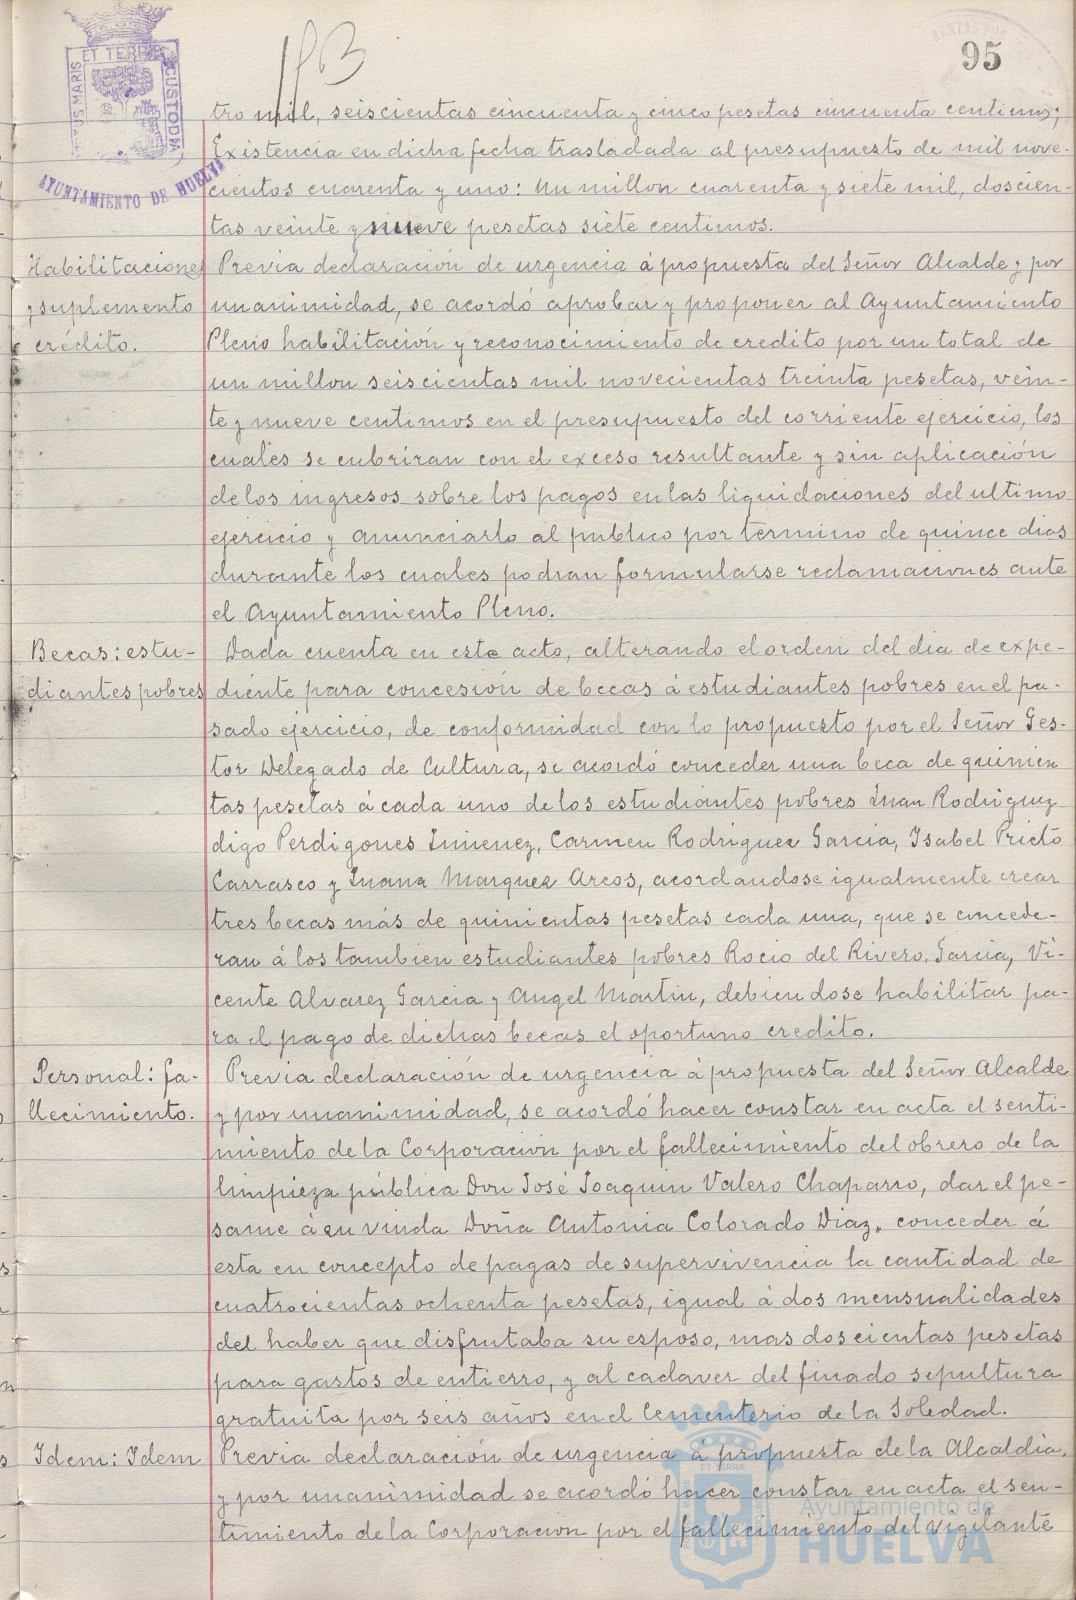 95
PORTUS MARIS ET TERRAE CUSTODIA
AYUNTAMIENTO DE HUELVA
tro mil, seiscientas cincuenta y cinco pesetas cincuenta centimos;
Existencia en dicha fecha trasladada al presupuesto de mil nove-
cientos cuarenta y uno: Un millon cuarenta y siete mil, doscien-
tas veinte y nueve pesetas siete centimos.
Habilitaciones
y suplemento
crédito.
Previa declaración de urgencia á propuesta del Señor Alcalde y por
unanimidad, se acordó aprobar y proponer al Ayuntamiento
Pleno habilitación y reconocimiento de credito por un total de
un millon seiscientas mil novecientas treinta pesetas, vein-
te y nueve centimos en el presupuesto del corriente ejercicio, los
cuales se cubriran con el exceso resultante y sin aplicación
de los ingresos sobre los pagos en las liquidaciones del ultimo
ejercicio y anunciarlo al publico por termino de quince dias
durante los cuales podran formularse reclamaciones ante
el Ayuntamiento Pleno.
Becas: estu-
diantes pobres
Dada cuenta en este acto, alterando el orden del dia de expe-
diente para concesión de becas á estudiantes pobres en el pa-
sado ejercicio, de conformidad con lo propuesto por el Señor Ges-
tor Delegado de Cultura, se acordó conceder una beca de quinien
tas pesetas á cada uno de los estudiantes pobres Juan Rodriguez
digo Perdigones Jimenez, Carmen Rodriguez Garcia, Isabel Prieto
Carrasco y Juana Marquez Arcos, acordandose igualmente crear
tres becas más de quinientas pesetas cada una, que se concede-
ran á los tambien estudiantes pobres Rocio del Rivero Garcia, Vi-
cente Alvarez Garcia y Angel Martin, debiendose habilitar pa-
ra el pago de dichas becas el oportuno credito.
Personal: fa-
llecimiento.
Previa declaración de urgencia á propuesta del Señor Alcalde
y por unanimidad, se acordó hacer constar en acta el senti-
miento de la Corporación por el fallecimiento del obrero de la
limpieza pública Don José Joaquin Valero Chaparro, dar el pe-
same á su viuda Doña Antonia Colorado Diaz, conceder á
esta en concepto de pagas de supervivencia la cantidad de
cuatrocientas ochenta pesetas, igual á dos mensualidades
del haber que disfrutaba su esposo, mas doscientas pesetas
para gastos de entierro, y al cadaver del finado sepultura
gratuita por seis años en el Cementerio de la Soledad.
Idem: Idem
Previa declaración de urgencia á propuesta de la Alcaldia,
y por unanimidad se acordó hacer constar en acta el sen-
timiento de la Corporación por el fallecimiento del vigilante
Ayuntamiento de
HUELVA